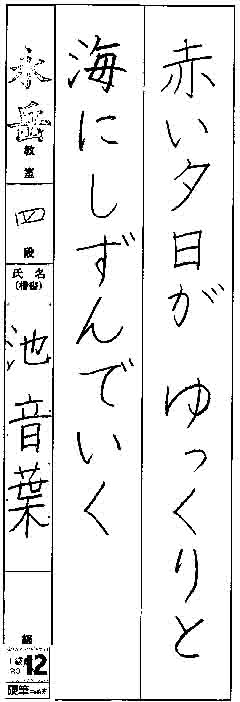 赤い夕日が ゆっくりと
海にしずんでいく
永岳教室
四段
氏名(楷書) 池音葉
12
硬筆